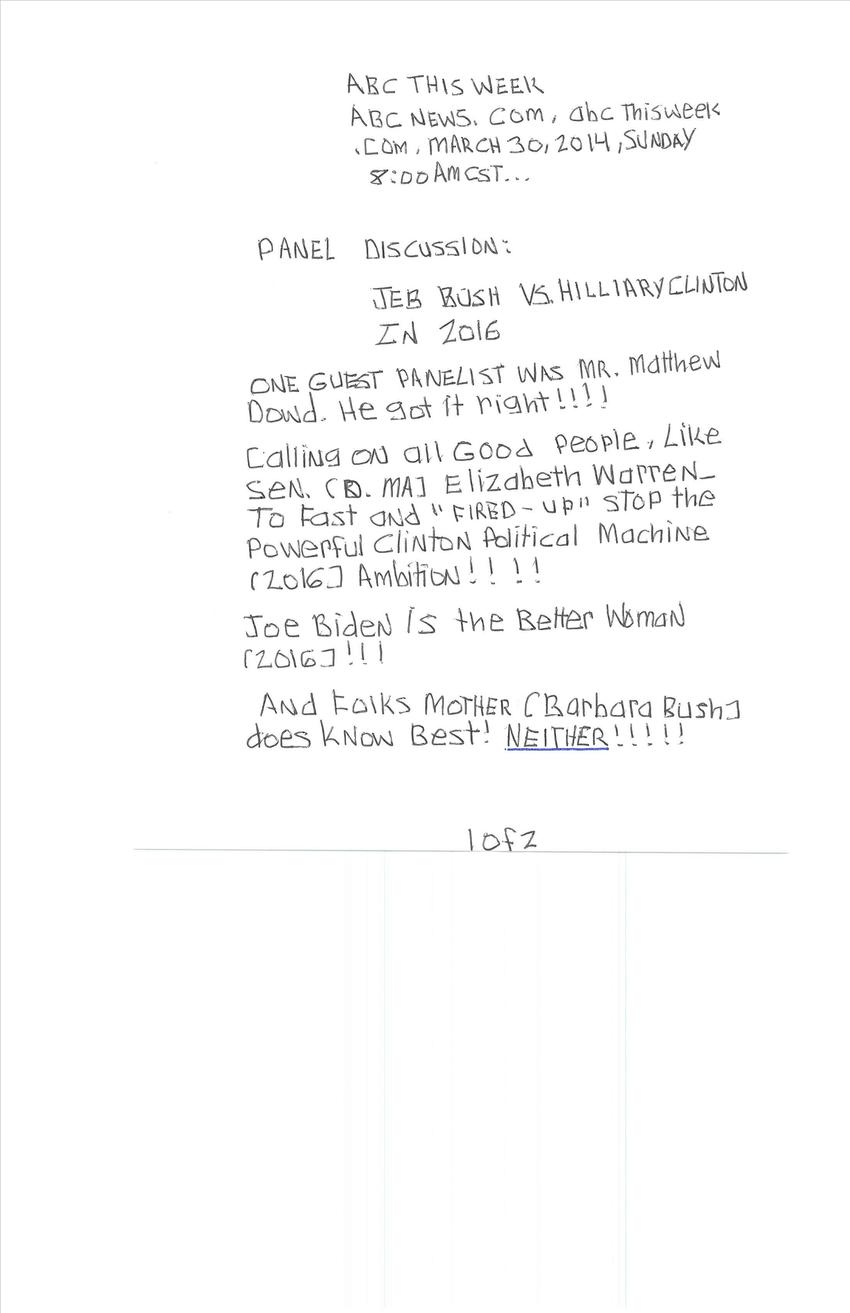 ABC THIS WEEK
ABC NEWS. COM, abc Thisweek
.COM, MARCH 30, 2014, SUNDAY
8:00 AM CST...
PANEL DISCUSSION:
JEB BUSH VS. HILLIARY CLINTON
IN 2016
ONE GUEST PANELIST WAS MR. Matthew
Dowd. He got it right!!!!
Calling on all Good People, Like
SEN. [D. MA] Elizabeth Warren_
To Fast and "FIRED-UP" STOP the
Powerful Clinton Political Machine
[2016] Ambition!!!!
Joe Biden Is the Better Woman
[2016]!!!
And Folks MOTHER [Barbara Bush]
does Know Best! NEITHER!!!!!
1 of 2